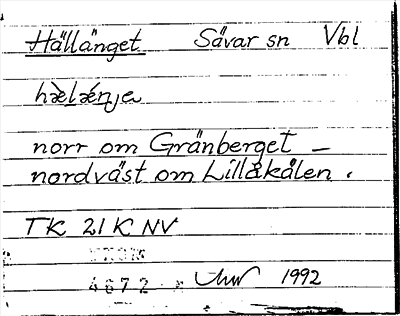 Hällänget Sävar sn Vbl
hæ̀lǽnje
norr om Gränberget –
nordväst om Lillåkålen.
TK 21 K NV
4672 1992